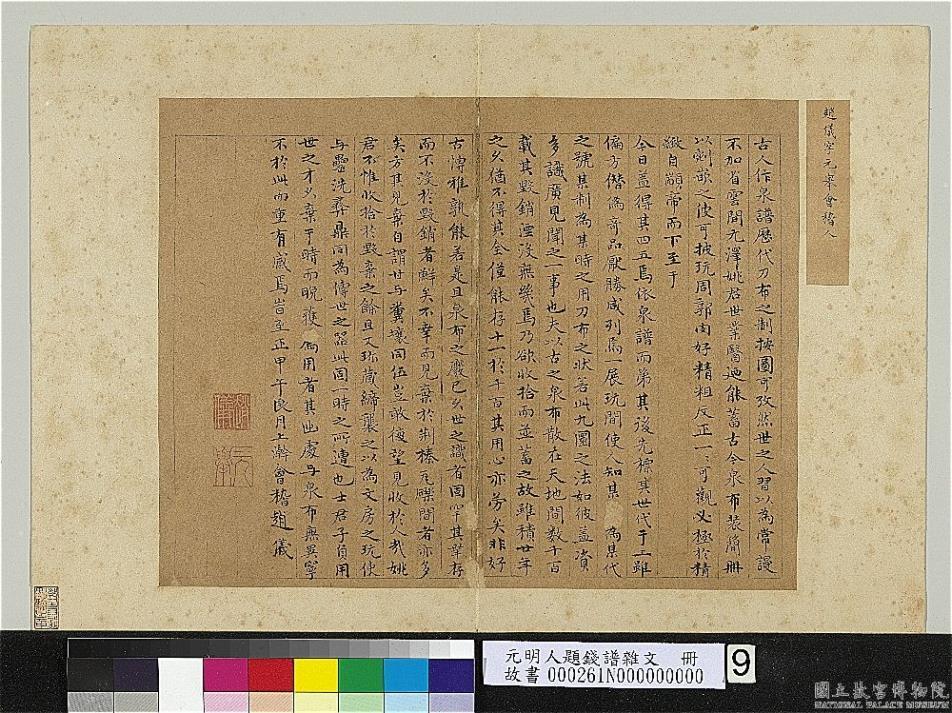 趙儀字元舉會稽人
古人作泉譜歷代刀布之制按圖可攷然世之人習以為常謾
不加省雲間元澤姚君世業醫迺能蓄古今泉布裝簡冊
以剜之使可披玩周郭肉好精粗反正一一可觀又極於精
緻自顓帝而下至于
今日蓋得其四五焉依泉譜而第其後先標其世代于上雖
偏方僭偽奇品厭勝咸列焉一展玩間使人知某為某代
之號某制為某時之用刀布之狀若此九圜之法如彼蓋資
多識廣見聞之一事也夫以古之泉布散在天地間數千百
載其毀銷湮沒無幾焉乃欲收拾而並蓄之故雖積世年
之久猶不得其全僅能存十一於千百其用心亦勞矣非好
古博雅孰能若是且泉布之廢已久世之識者固罕其幸存
而不沒於毀銷者鮮矣不幸而見棄於荆榛瓦礫間者亦多
矣方其見棄自謂甘與糞壤同伍豈敢復望見收於人哉姚
君不惟收拾於毀棄之餘且又珎藏締襲之以為文房之玩使
與罍洗彝鼎同為傳世之器此固一時之所遭也士君子負用
世之才久棄于時而晩獲用者其出處與泉布無異寧
不於此而重有感焉豈至正甲午良月上澣會稽趙儀
元明人題錢譜雜文 冊
故書 000261N000000000
9
國立故宮博物院
NATIONAL PALACE MUSEUM